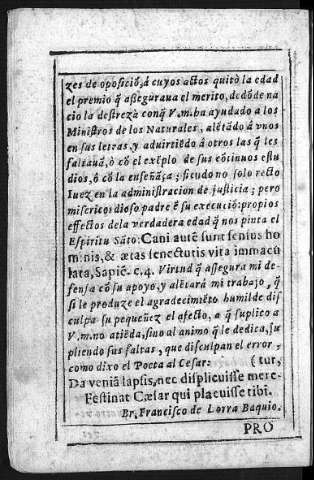 zes de oposiciō, á cuyos actos quitò la edad
el premio q̃ asseguraua el merito, de dōde na
cio la destreza conq̃ V.m. ha ayudado a los
Ministros de los Naturales, alētādo á vnos
en sus letras, y aduirtiēdo á otros las q̃ les
faltauā, ò cō el exēplo de sus cōtinuos estu
dios, ò cō la enseñāça; siendo no solo recto
Iuez en la administracion de justicia; pero
misericordioso padre ē su execuciō: propios
effectos de la verdadera edad q̃ nos pinta el
Espiritu Sāto: Cani autē sunt sensus ho
minis, & ætas senectutis vita immacu
lata, Sapiē. c. 4. Virtud q̃ assegura mi de-
fensa cō su apoyo, y alētará mi trabajo, q̃
si le produze el agradecimiēto humilde dis
culpa su pequeñez el afecto, a q̃ suplico a
V.m. no atiēda, sino al animo q̃ le dedica, su
pliendo sus faltas, que disculpan el error,
como dixo el Poeta al Cesar: (tur,
Da veniā lapsis, nec displicuisse mere-
Festinat Cæsar qui placuisse tibi.
Br. Francisco de Lorra Baquio.
PRO